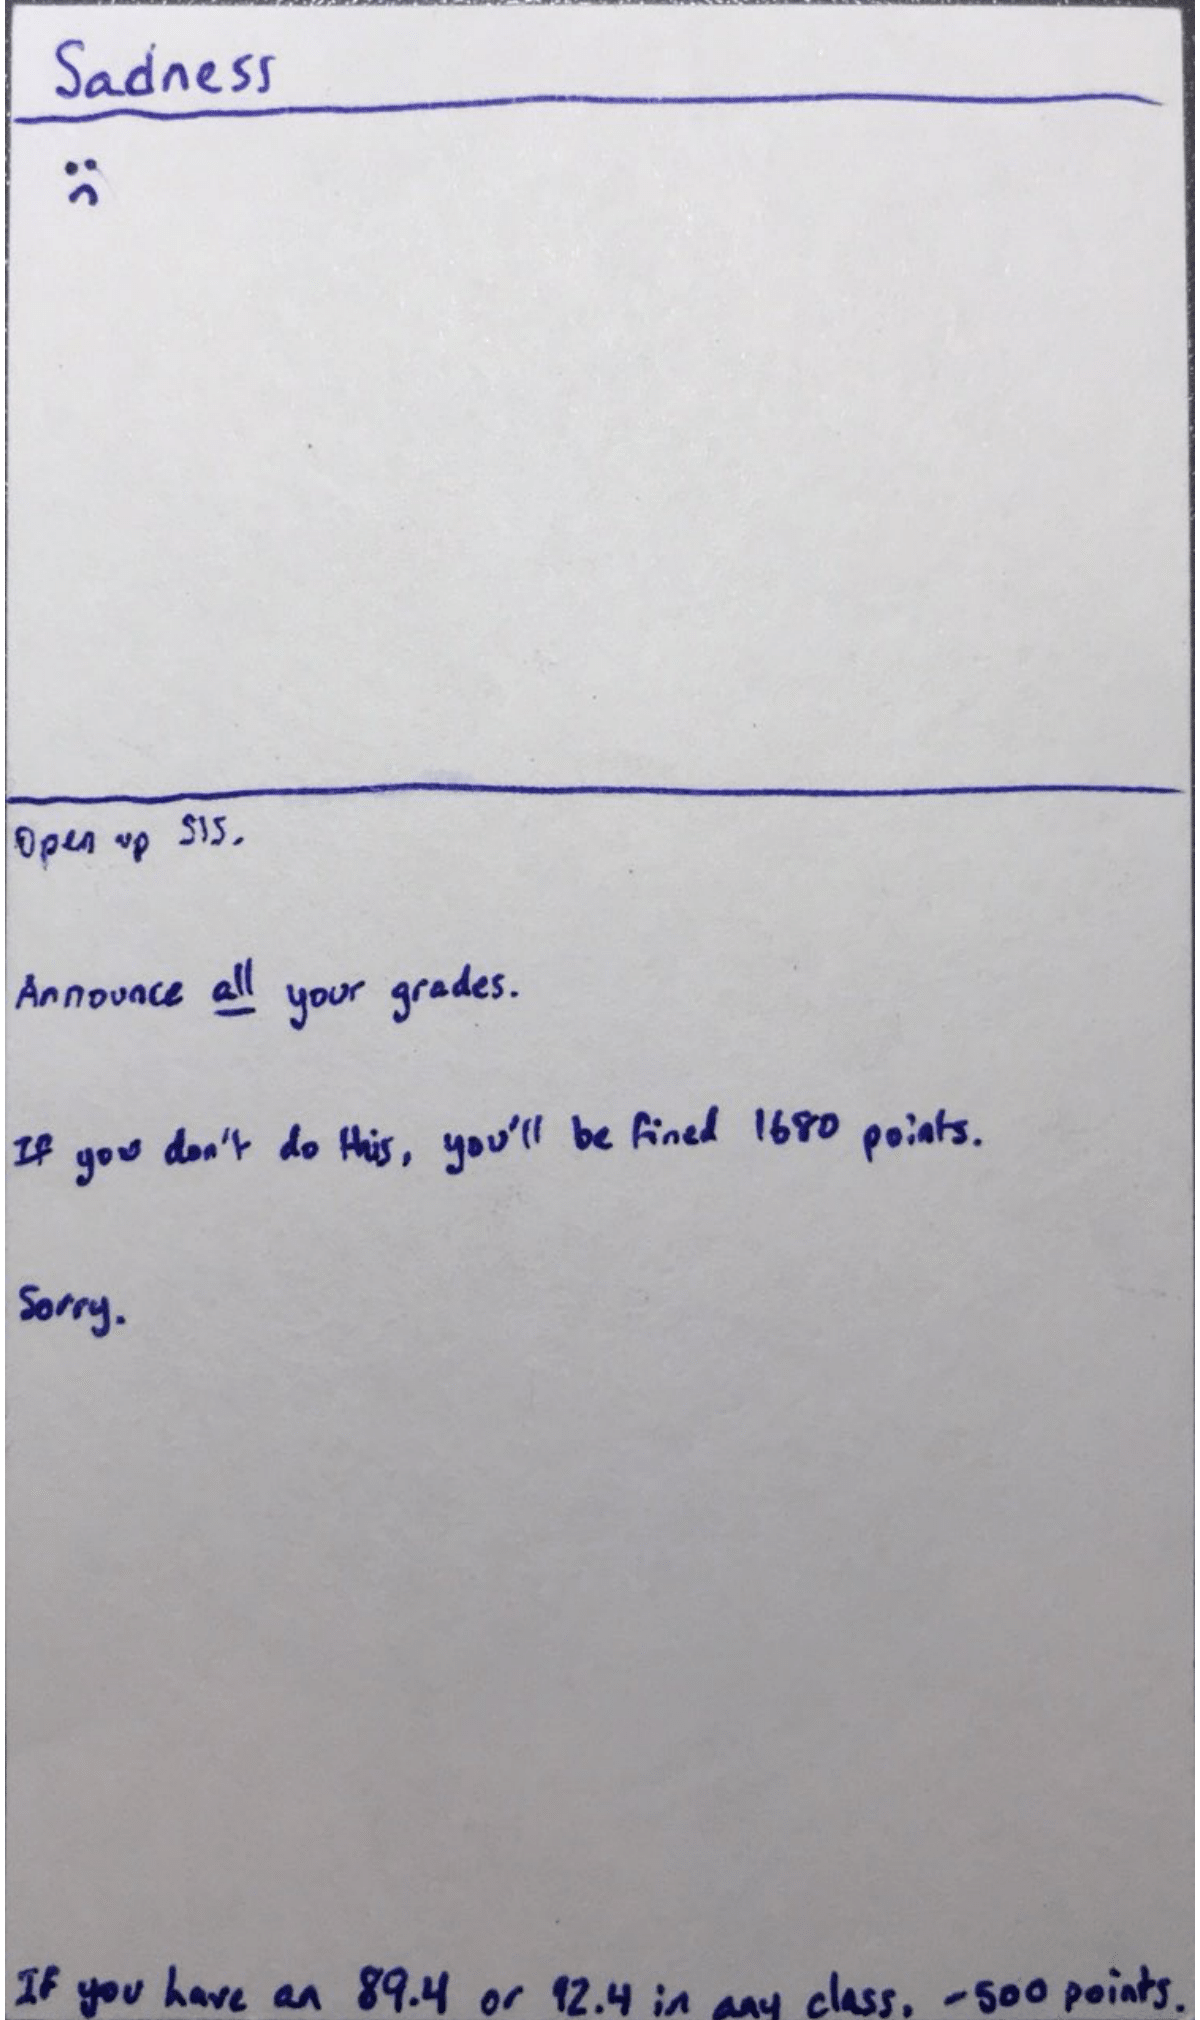 Sadness
Open up SIS.
Announce all your grades.
If you don't do this, you'll be fined 1680 points.
Sorry.
If you have an 89.4 or 92.4 in any class, -500 points.